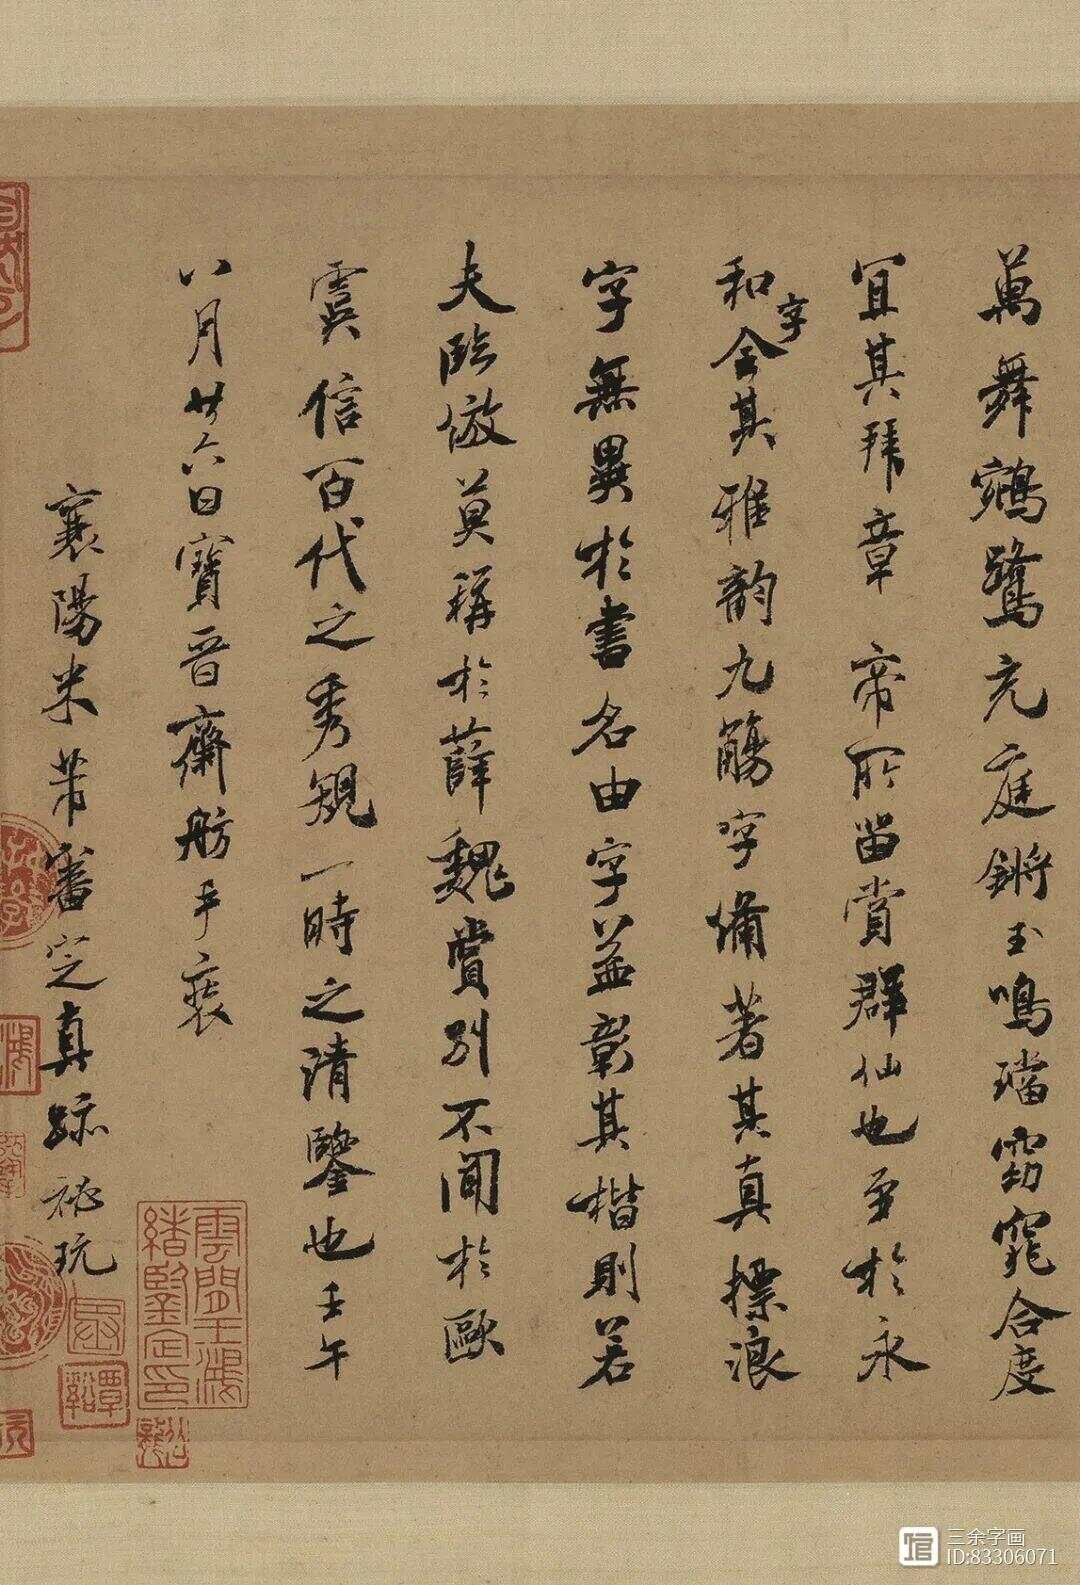 萬舞鵷鷺充庭鏘玉鳴璫窈窕合度
宜其拜章帝所留賞群仙也至於永
和字全其雅韵九觴字備著其真標浪
字無異於書名由字益彰其楷則若
夫臨倣莫稱於薛魏賞別不聞於歐
虞信百代之秀規一時之清鑒也壬午
八月廿六日寶晉齋舫手裝
襄陽米芾審定真跡秘玩
雲間王鴻
緒鑒定印
三余字画
ID:83306071